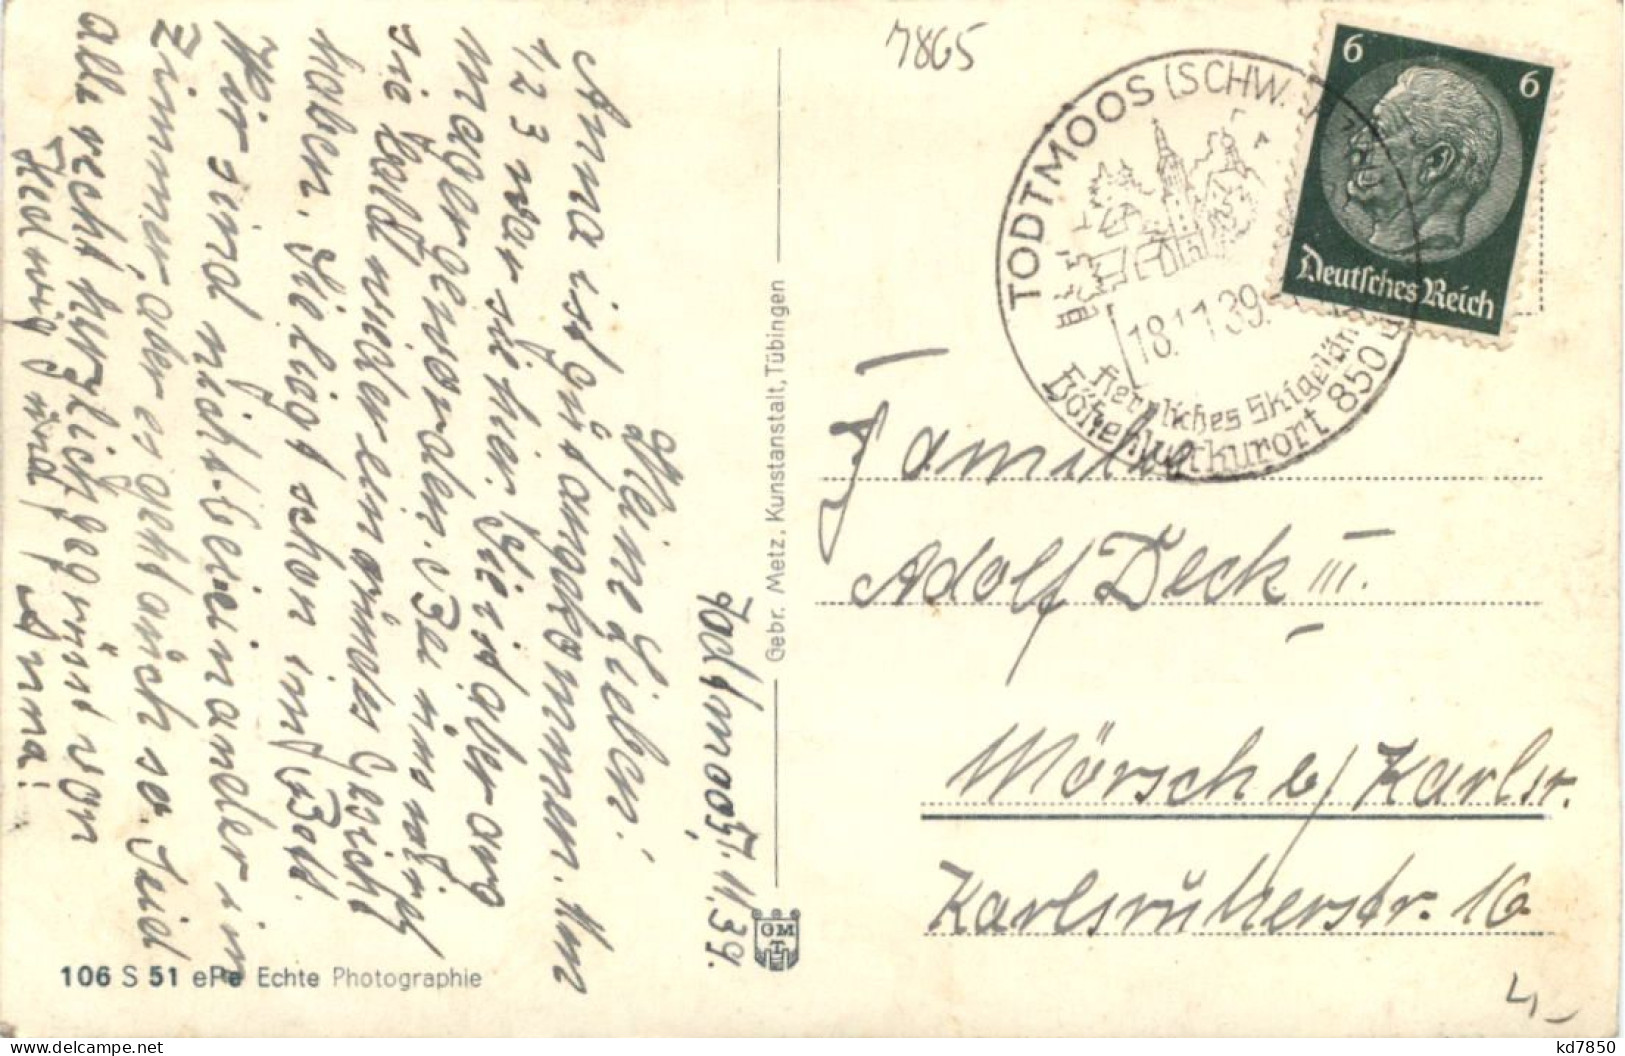 Todtmoos, 17.11.39.
Meine Lieben!
Anna ist gut angekommen. Um
1/2 3 war sie hier. Sie ist aber arg
mager geworden. Bei uns wird
sie bald wieder ein rundes Gesicht
haben. Sie liegt schon im Bett.
Wir sind nicht beieinander im
Zimmer, aber es geht auch so. Seid
alle recht herzlich gegrüsst von
Hedwig und Anna!
106 S 51 ePe Echte Photographie
Gebr. Metz, Kunstanstalt, Tübingen
GMT
7865
TODTMOOS (SCHW.
18.11.39.
Herrliches Skigelän
Höhenluftkurort 850
6 6
Deutsches Reich
Familie
Adolf Deck III.
Mörsch b/ Karlsr.
Karlsruherstr. 16
4,-
kd7850